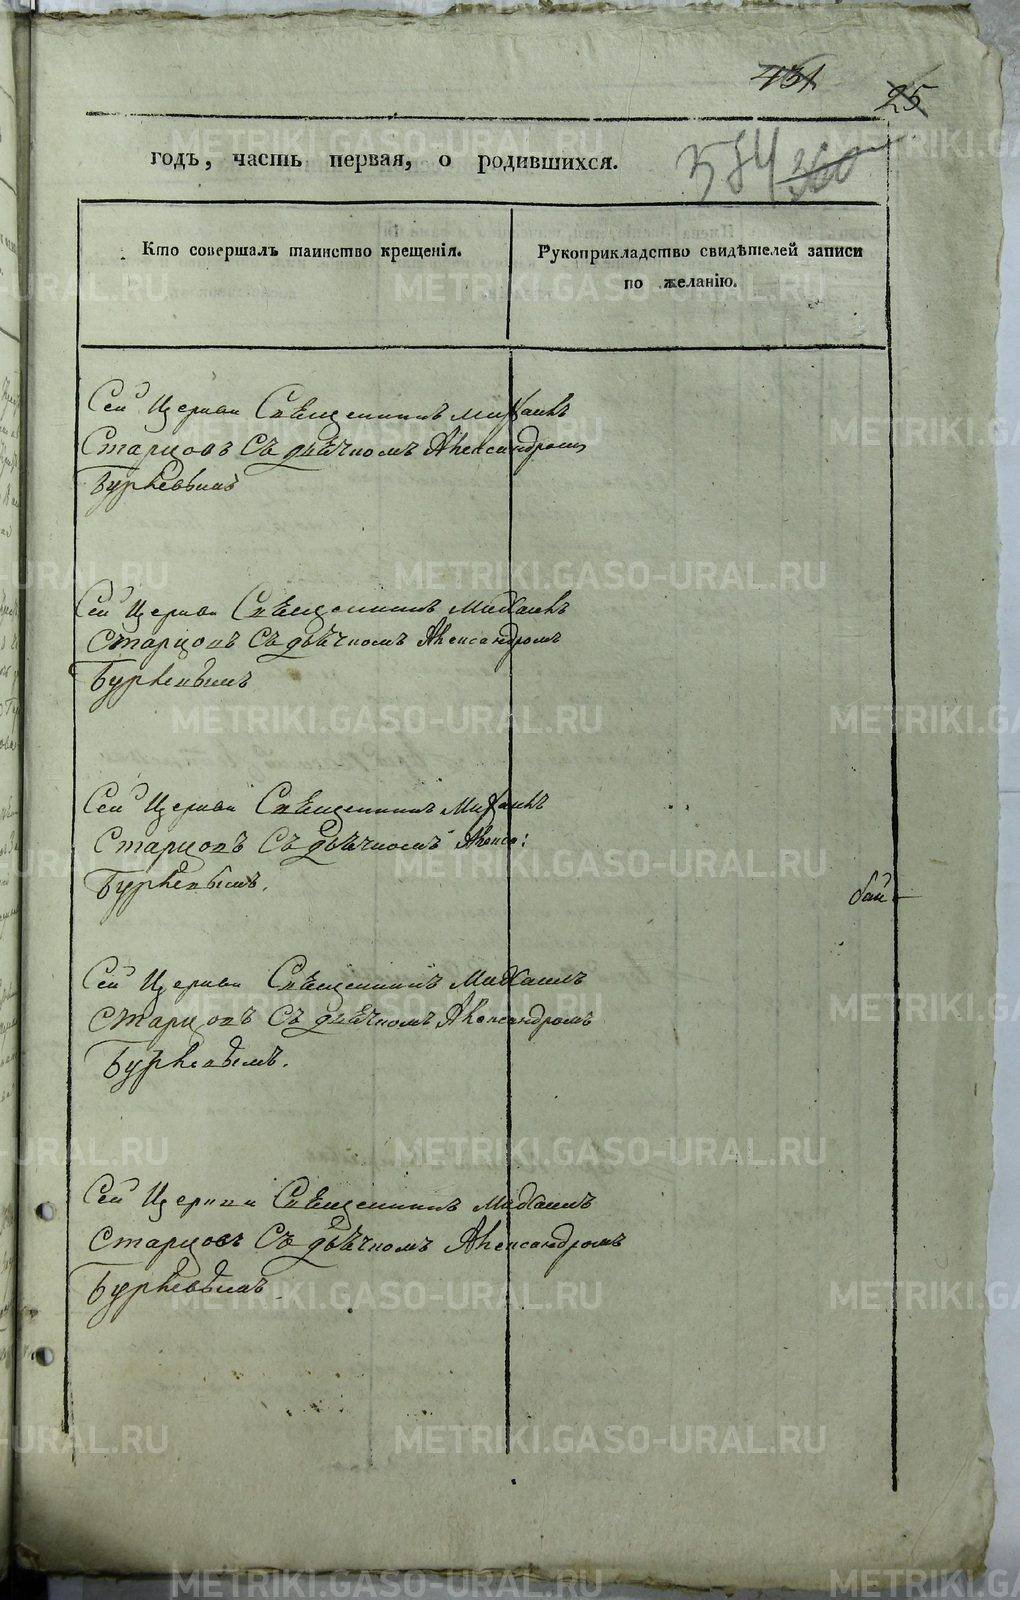 431
25
годъ, часть первая, о родившихся.
384 360
Кто совершалъ таинство крещенія.
Рукоприкладство свидѣтелей записи
по желанію.
Сей Церкви Священникъ Михаилъ
Старцовъ Съ дьячкомъ Александромъ
Бурлевымъ
Сей Церкви Священникъ Михаилъ
Старцовъ Съ дьячкомъ Александромъ
Бурлевымъ
Сей Церкви Священникъ Михаилъ
Старцовъ Съ дьячкомъ Алекса:
Бурлевымъ.
Сей Церкви Священникъ Михаилъ
Старцовъ Съ дьячкомъ Александромъ
Бурлевымъ.
Сей Церкви Священникъ Михаилъ
Старцовъ Съ дьячкомъ Александромъ
Бурлевымъ
METRIKI.GASO-URAL.RU